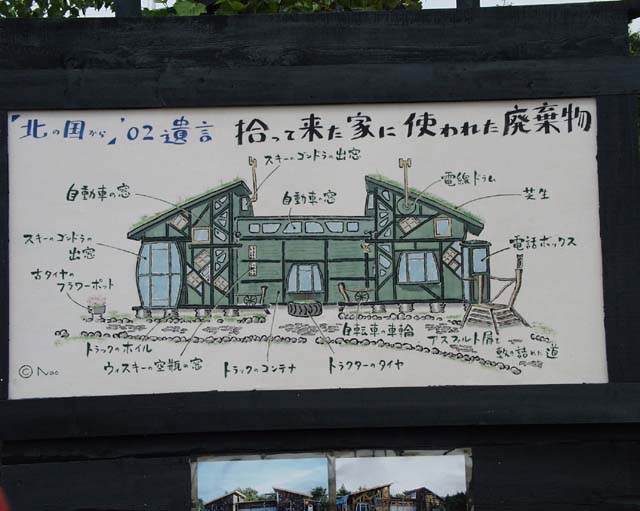 「北の国から」'02遺言 拾って来た家に使われた廃棄物
スキーのゴンドラの出窓
自動車の窓
自動車の窓
電線ドラム
芝生
スキーのゴンドラの
出窓
電話ボックス
古タイヤの
フラワーポット
トラックのホイル
ウィスキーの空瓶の窓
トラックのコンテナ
トラクターのタイヤ
自転車の車輪
アスファルト屑を
敷き詰めた道
© Nao